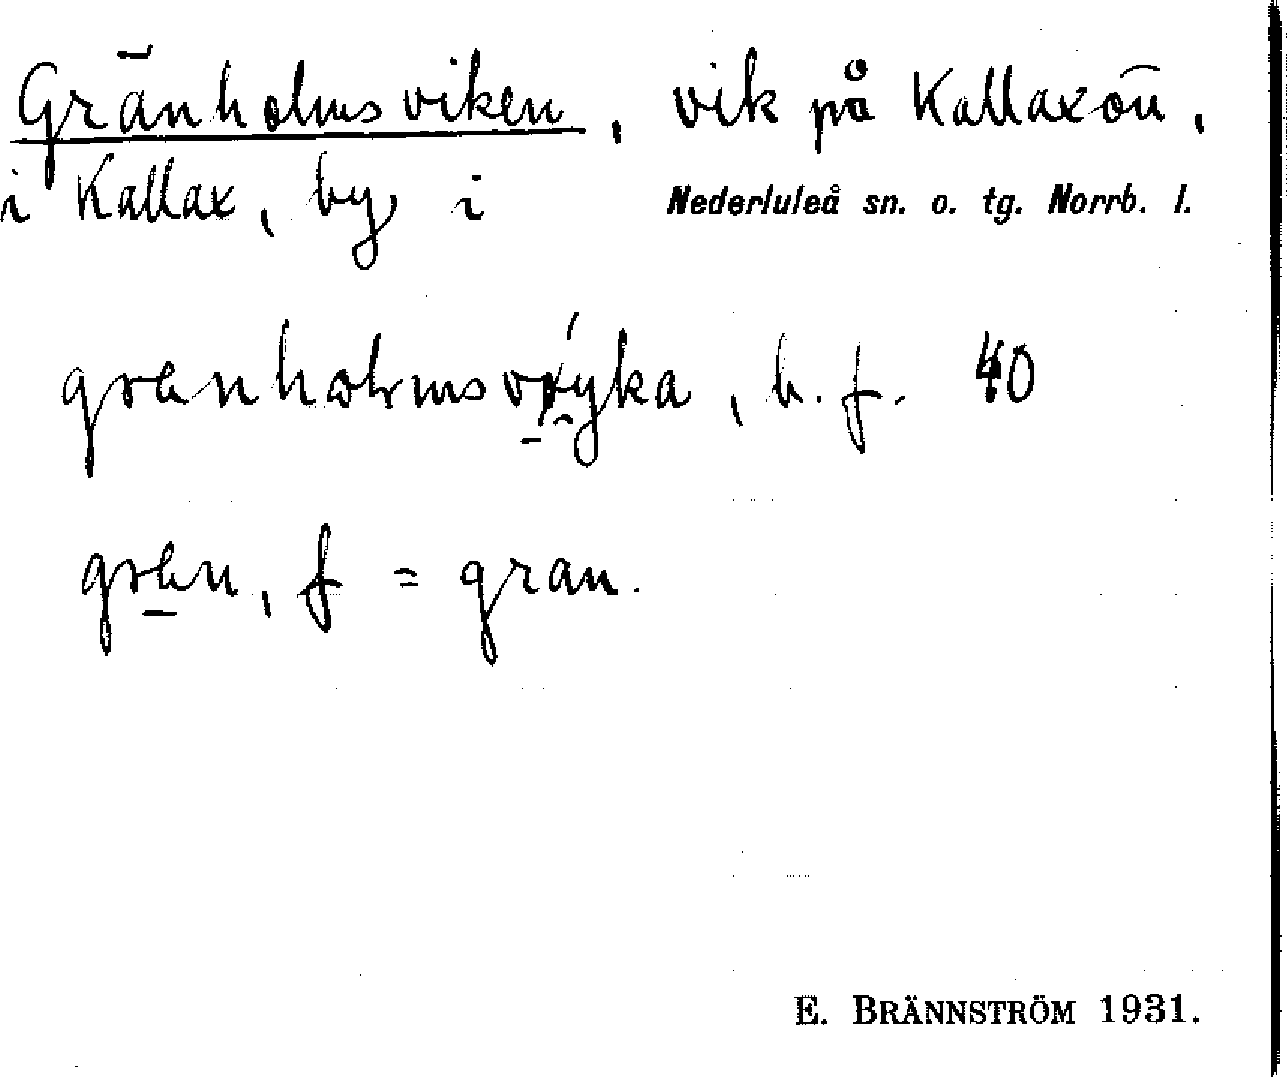 Gränholmsviken, vik på Kallaxön,
i Kallax, by i Nederluleå sn. o. tg. Norrb. l.
b. f. 40
f = gran.
E. BRÄNNSTRÖM 1931.